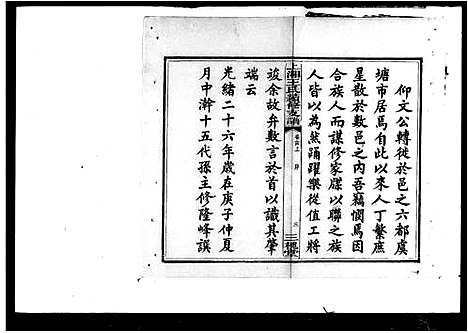 仰文公轉徙於邑之六都虞
塘市居焉自此以來人丁繁庶
星散於數邑之內吾竊憫焉因
合族人而謀修家牒以聯之族
人皆以為然踴躍樂從值工將
上湘王氏續修支譜
卷首上 序
三槐堂
竣余故弁數言於首以識其肇
端云
光緒二十六年歲在庚子仲夏
月中澣十五代孫主修隆峰謨